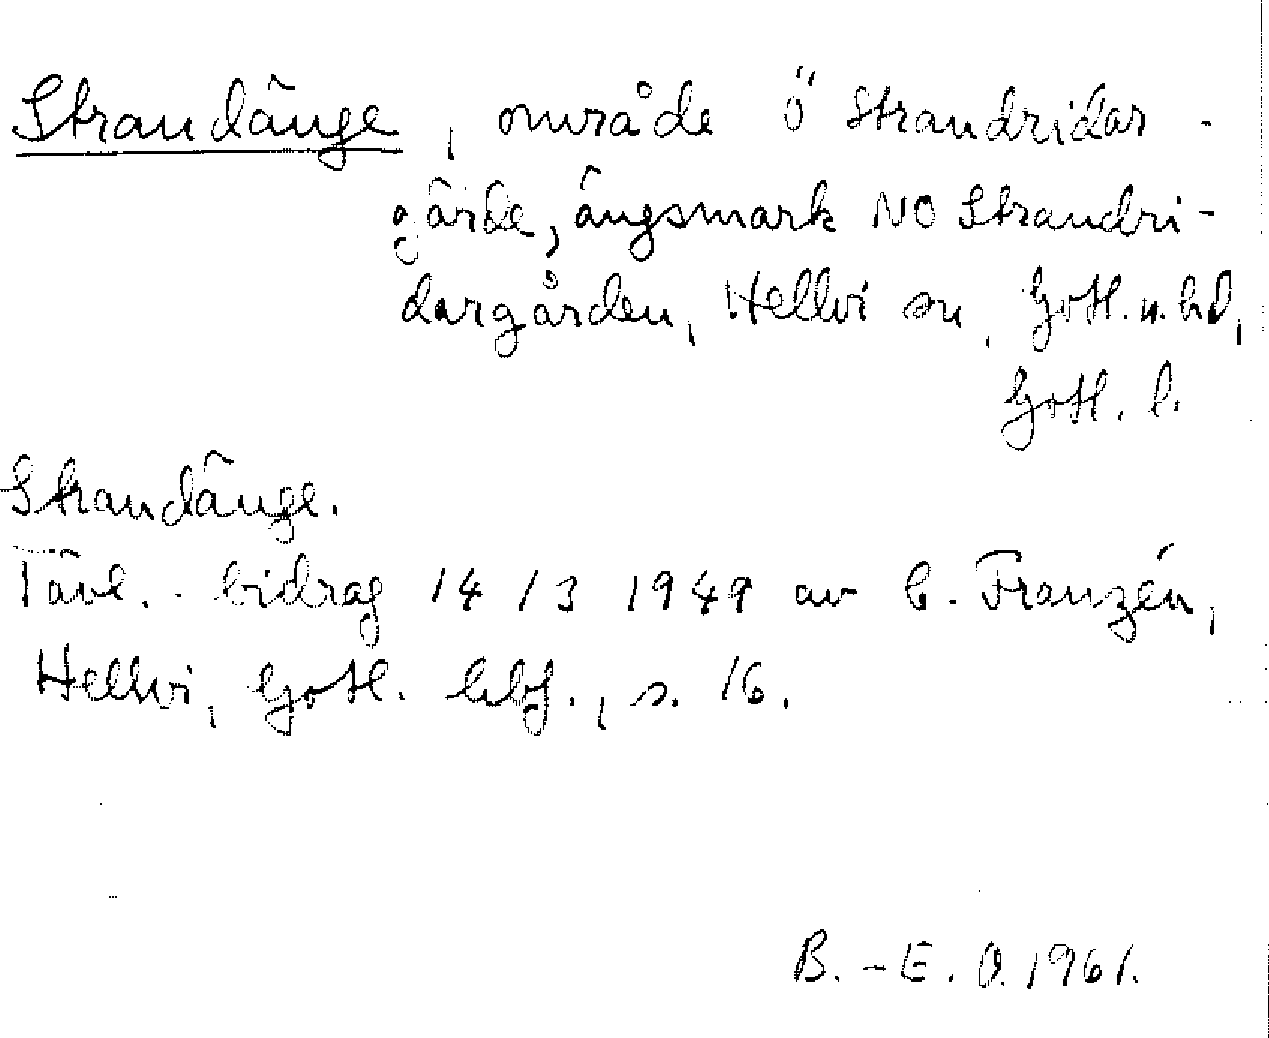 Strandänge, område Ö Strandridar-
gärde, ängsmark NO Strandri-
dargården, Hellvi sn, Gotl. n. hd,
Gotl. l.
Strandänge.
Tävl.-bidrag 14/3 1949 av C. Franzén,
Hellvi, Gotl. hbf., s. 16.
B.-E. O. 1961.